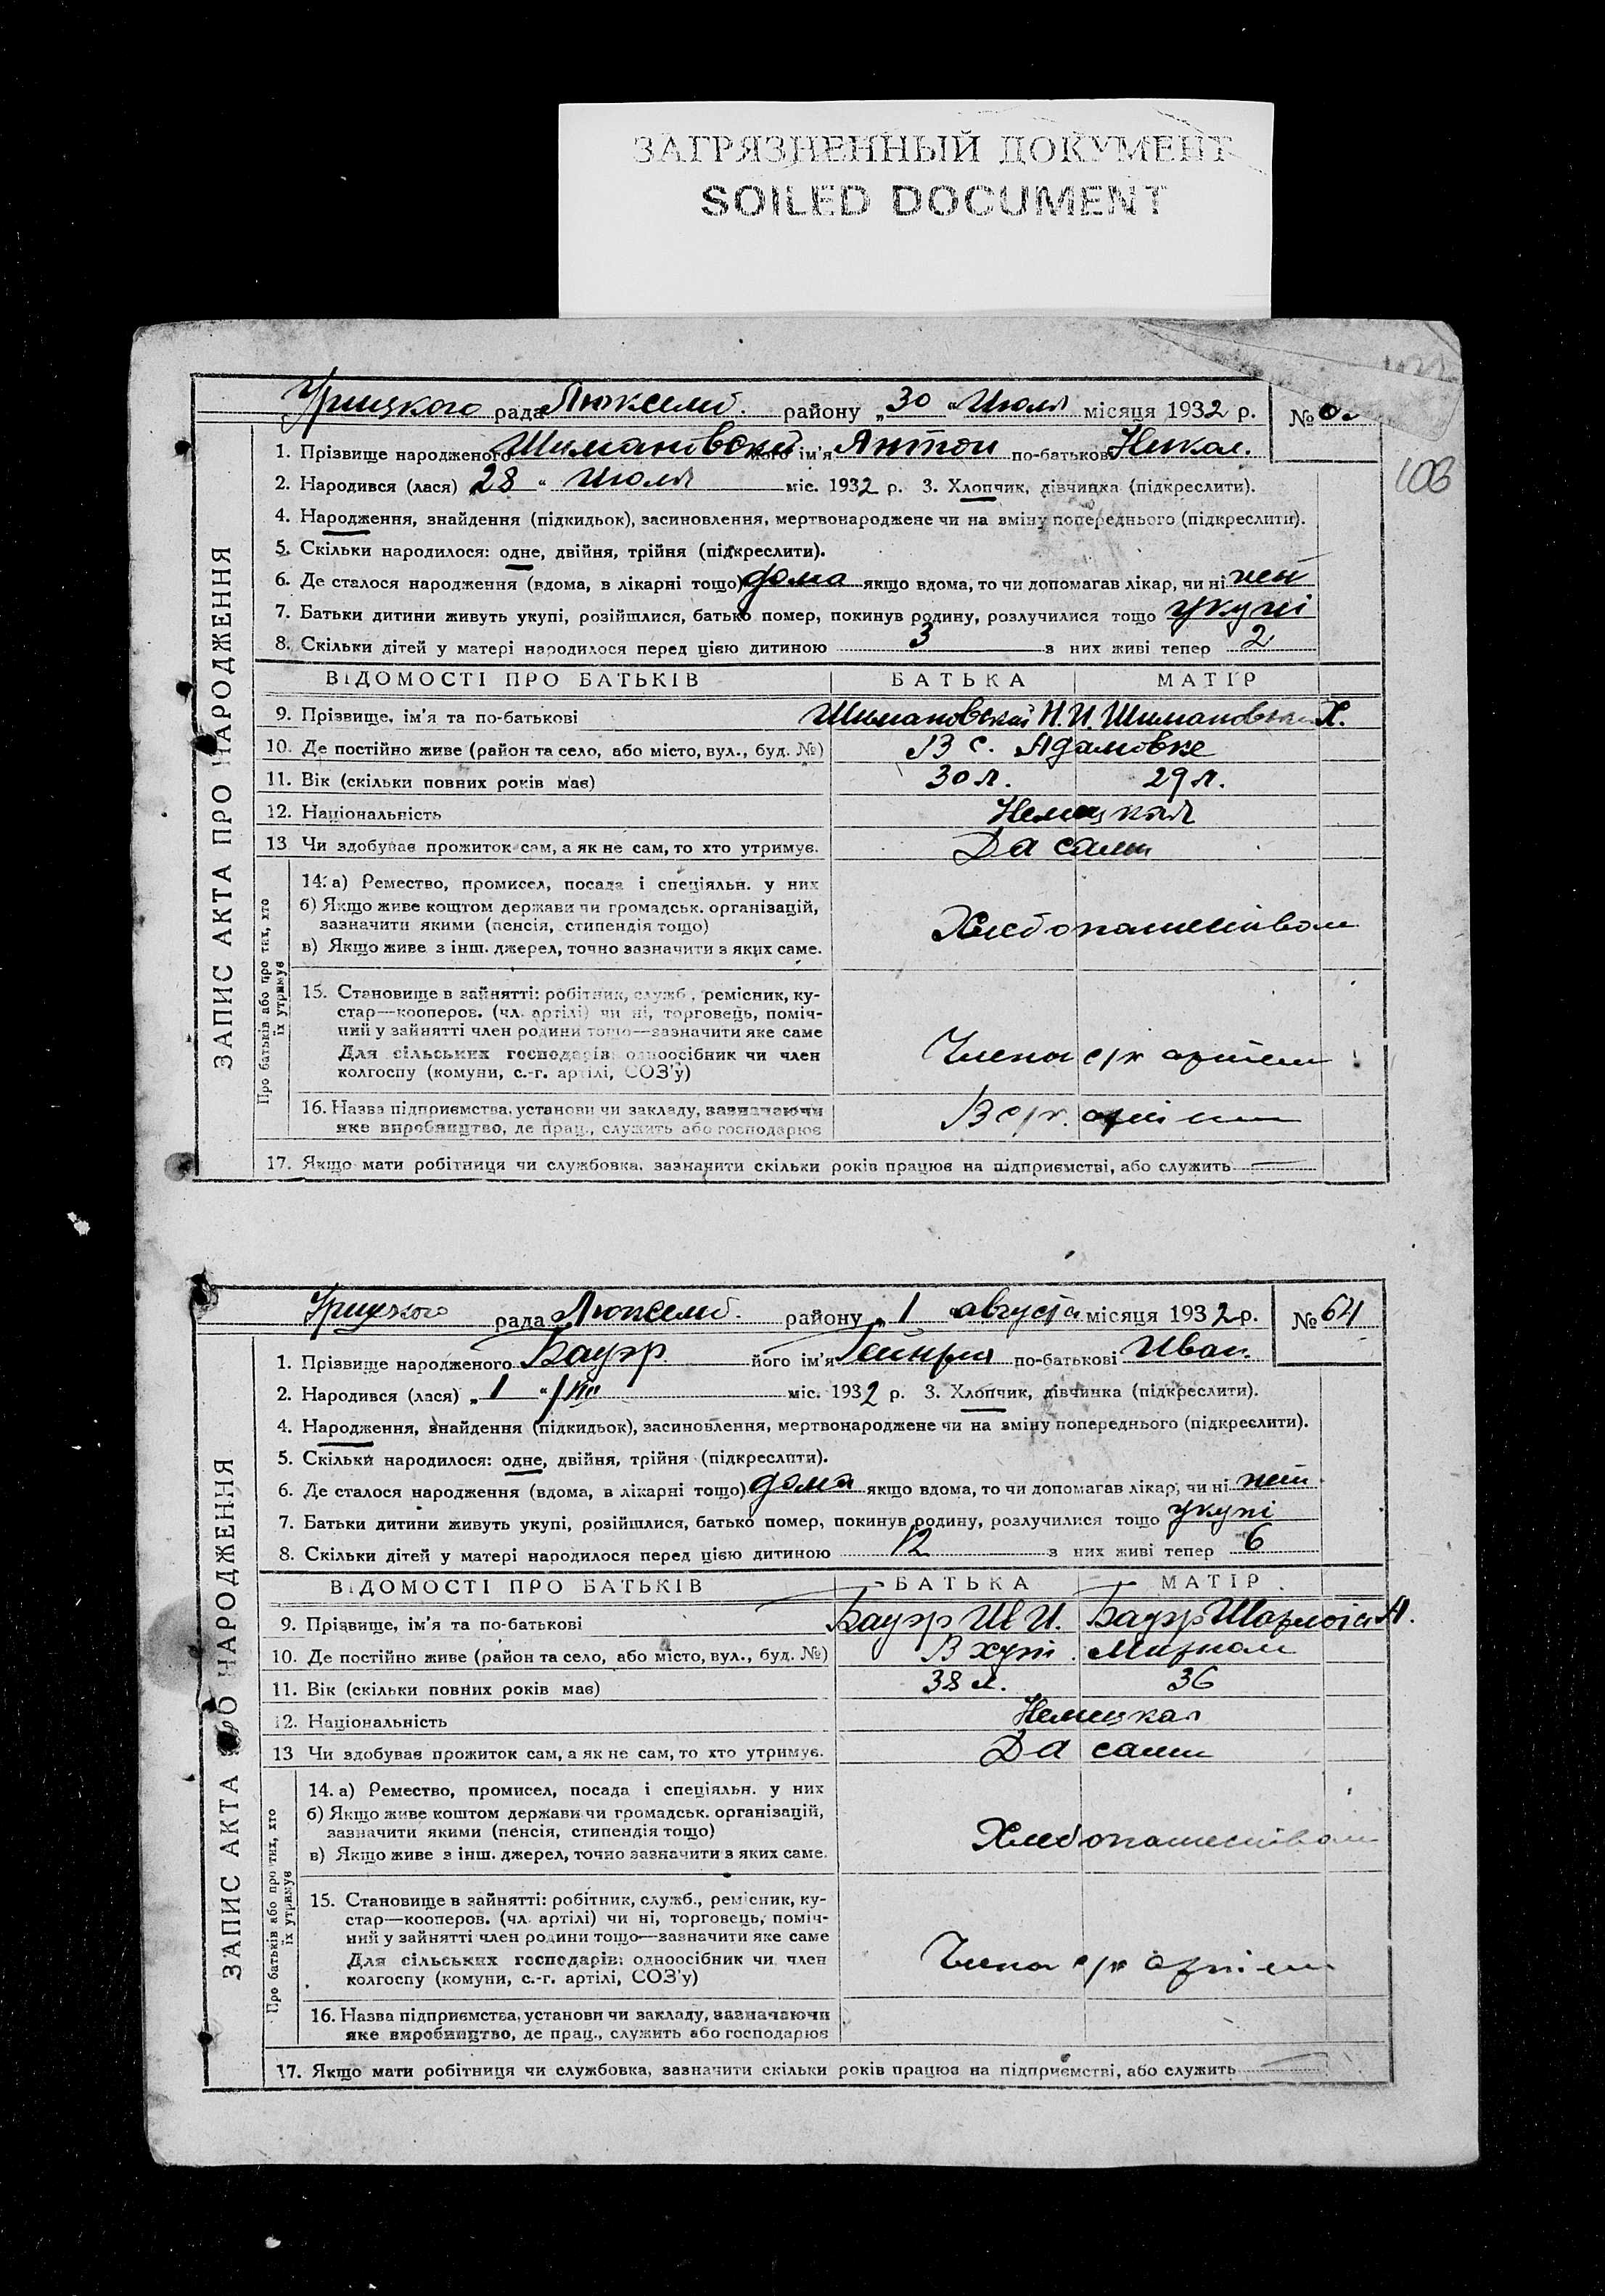 ЗАГРЯЗНЕННЫЙ ДОКУМЕНТ
SOILED DOCUMENT
Урицкого рада Люксемб. району „30 " Июля місяця 1932 р. №
108
1. Прізвище народженого Шимановский його ім'я Антон по-батькові Никол.
2. Народився (лася) „28 " Июля міс. 1932 р. 3. Хлопчик, дівчинка (підкреслити).
4. Народження, знайдення (підкидьок), засиновлення, мертвонароджене чи на зміну попереднього (підкреслити).
5. Скільки народилося: одне, двійня, трійня (підкреслити).
6. Де сталося народження (вдома, в лікарні тощо) дома якщо вдома, то чи допомагав лікар, чи ні нет
7. Батьки дитини живуть укупі, розійшлися, батько помер, покинув родину, розлучилися тощо укупі
8. Скільки дітей у матері народилося перед цією дитиною 3 з них живі тепер 2
ЗАПИС АКТА ПРО НАРОДЖЕННЯ
ВІДОМОСТІ ПРО БАТЬКІВ БАТЬКА МАТІР
9. Прізвище, ім'я та по-батькові Шимановский Н. И. Шимановская Х.
10. Де постійно живе (район та село, або місто, вул., буд. №) В с. Адамовке
11. Вік (скільки повних років має) 30 л. 29 л.
12. Національність Немецкая
13 Чи здобуває прожиток сам, а як не сам, то хто утримує. Да сами
Про батьків або про тих, хто їх утримує
14. а) Ремество, промисел, посада і спеціяльн. у них
б) Якщо живе коштом держави чи громадськ. організацій,
зазначити якими (пенсія, стипендія тощо) Хлебопашеством
в) Якщо живе з інш. джерел, точно зазначити з яких саме.
15. Становище в зайнятті: робітник, служб., ремісник, ку-
стар—кооперов. (чл. артілі) чи ні, торговець, поміч-
ний у зайнятті член родини тощо—зазначити яке саме
Для сільських господарів: одноосібник чи член Члены с/х артели
колгоспу (комуни, с.-г. артілі, СОЗ'у)
16. Назва підприємства, установи чи закладу, зазначаючи В с/х. артели
яке виробництво, де прац., служить або господарює
17. Якщо мати робітниця чи службовка, зазначити скільки років працює на підприємстві, або служить
Урицкого рада Люксемб. району „ 1 " августа місяця 1932 р. № 64
1. Прізвище народженого Бауэр його ім'я Гейнрих по-батькові Иван.
2. Народився (лася) „ 1 " /VIII міс. 1932 р. 3. Хлопчик, дівчинка (підкреслити).
4. Народження, знайдення (підкидьок), засиновлення, мертвонароджене чи на зміну попереднього (підкреслити).
5. Скільки народилося: одне, двійня, трійня (підкреслити).
6. Де сталося народження (вдома, в лікарні тощо) дома якщо вдома, то чи допомагав лікар, чи ні нет
7. Батьки дитини живуть укупі, розійшлися, батько помер, покинув родину, розлучилися тощо укупі
8. Скільки дітей у матері народилося перед цією дитиною 12 з них живі тепер 6
ЗАПИС АКТА ПРО НАРОДЖЕННЯ
ВІДОМОСТІ ПРО БАТЬКІВ БАТЬКА МАТІР
9. Прізвище, ім'я та по-батькові Бауэр И. Бауэр Шарлота А.
10. Де постійно живе (район та село, або місто, вул., буд. №) В хут. Мирном
11. Вік (скільки повних років має) 38 л. 36
12. Національність Немецкая
13 Чи здобуває прожиток сам, а як не сам, то хто утримує. Да сами
Про батьків або про тих, хто їх утримує
14. а) Ремество, промисел, посада і спеціяльн. у них
б) Якщо живе коштом держави чи громадськ. організацій,
зазначити якими (пенсія, стипендія тощо) Хлебопашеством
в) Якщо живе з інш. джерел, точно зазначити з яких саме.
15. Становище в зайнятті: робітник, служб., ремісник, ку-
стар—кооперов. (чл. артілі) чи ні, торговець, поміч-
ний у зайнятті член родини тощо—зазначити яке саме
Для сільських господарів: одноосібник чи член Члены с/х артели
колгоспу (комуни, с.-г. артілі, СОЗ'у)
16. Назва підприємства, установи чи закладу, зазначаючи
яке виробництво, де прац., служить або господарює
17. Якщо мати робітниця чи службовка, зазначити скільки років працює на підприємстві, або служить